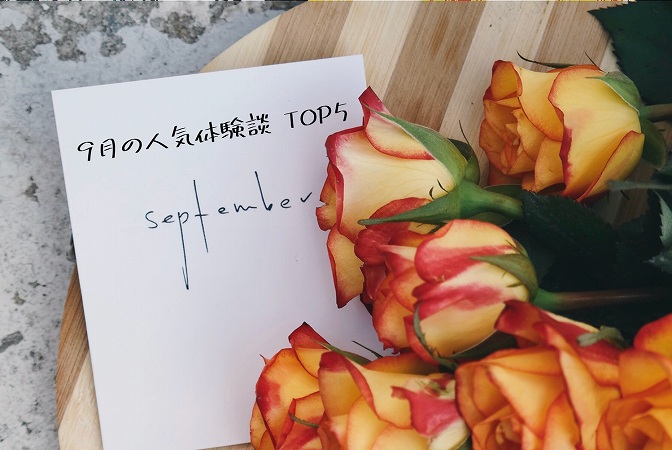 9月の人気体験談 TOP5
september